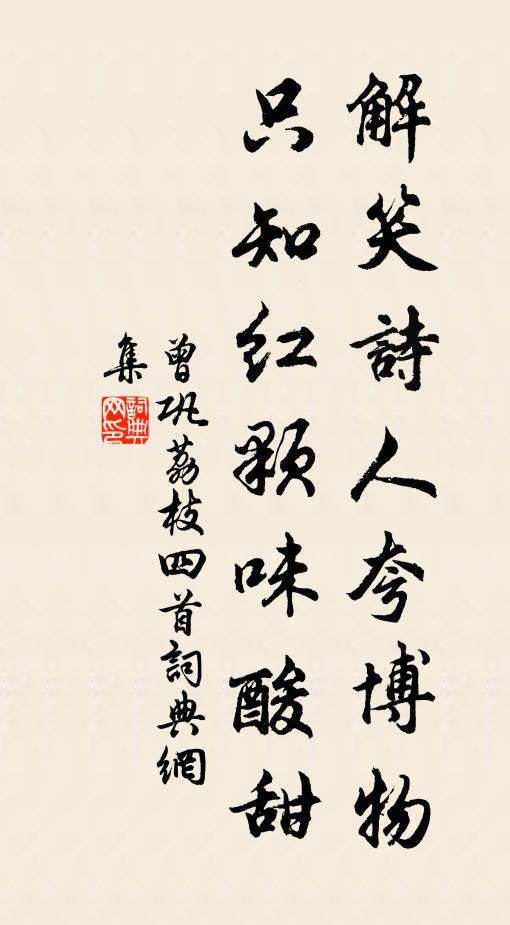 解笑詩人夸博物
只知紅顆味酸甜
曾巩荔枝四首詞典網
集
詞典
网印